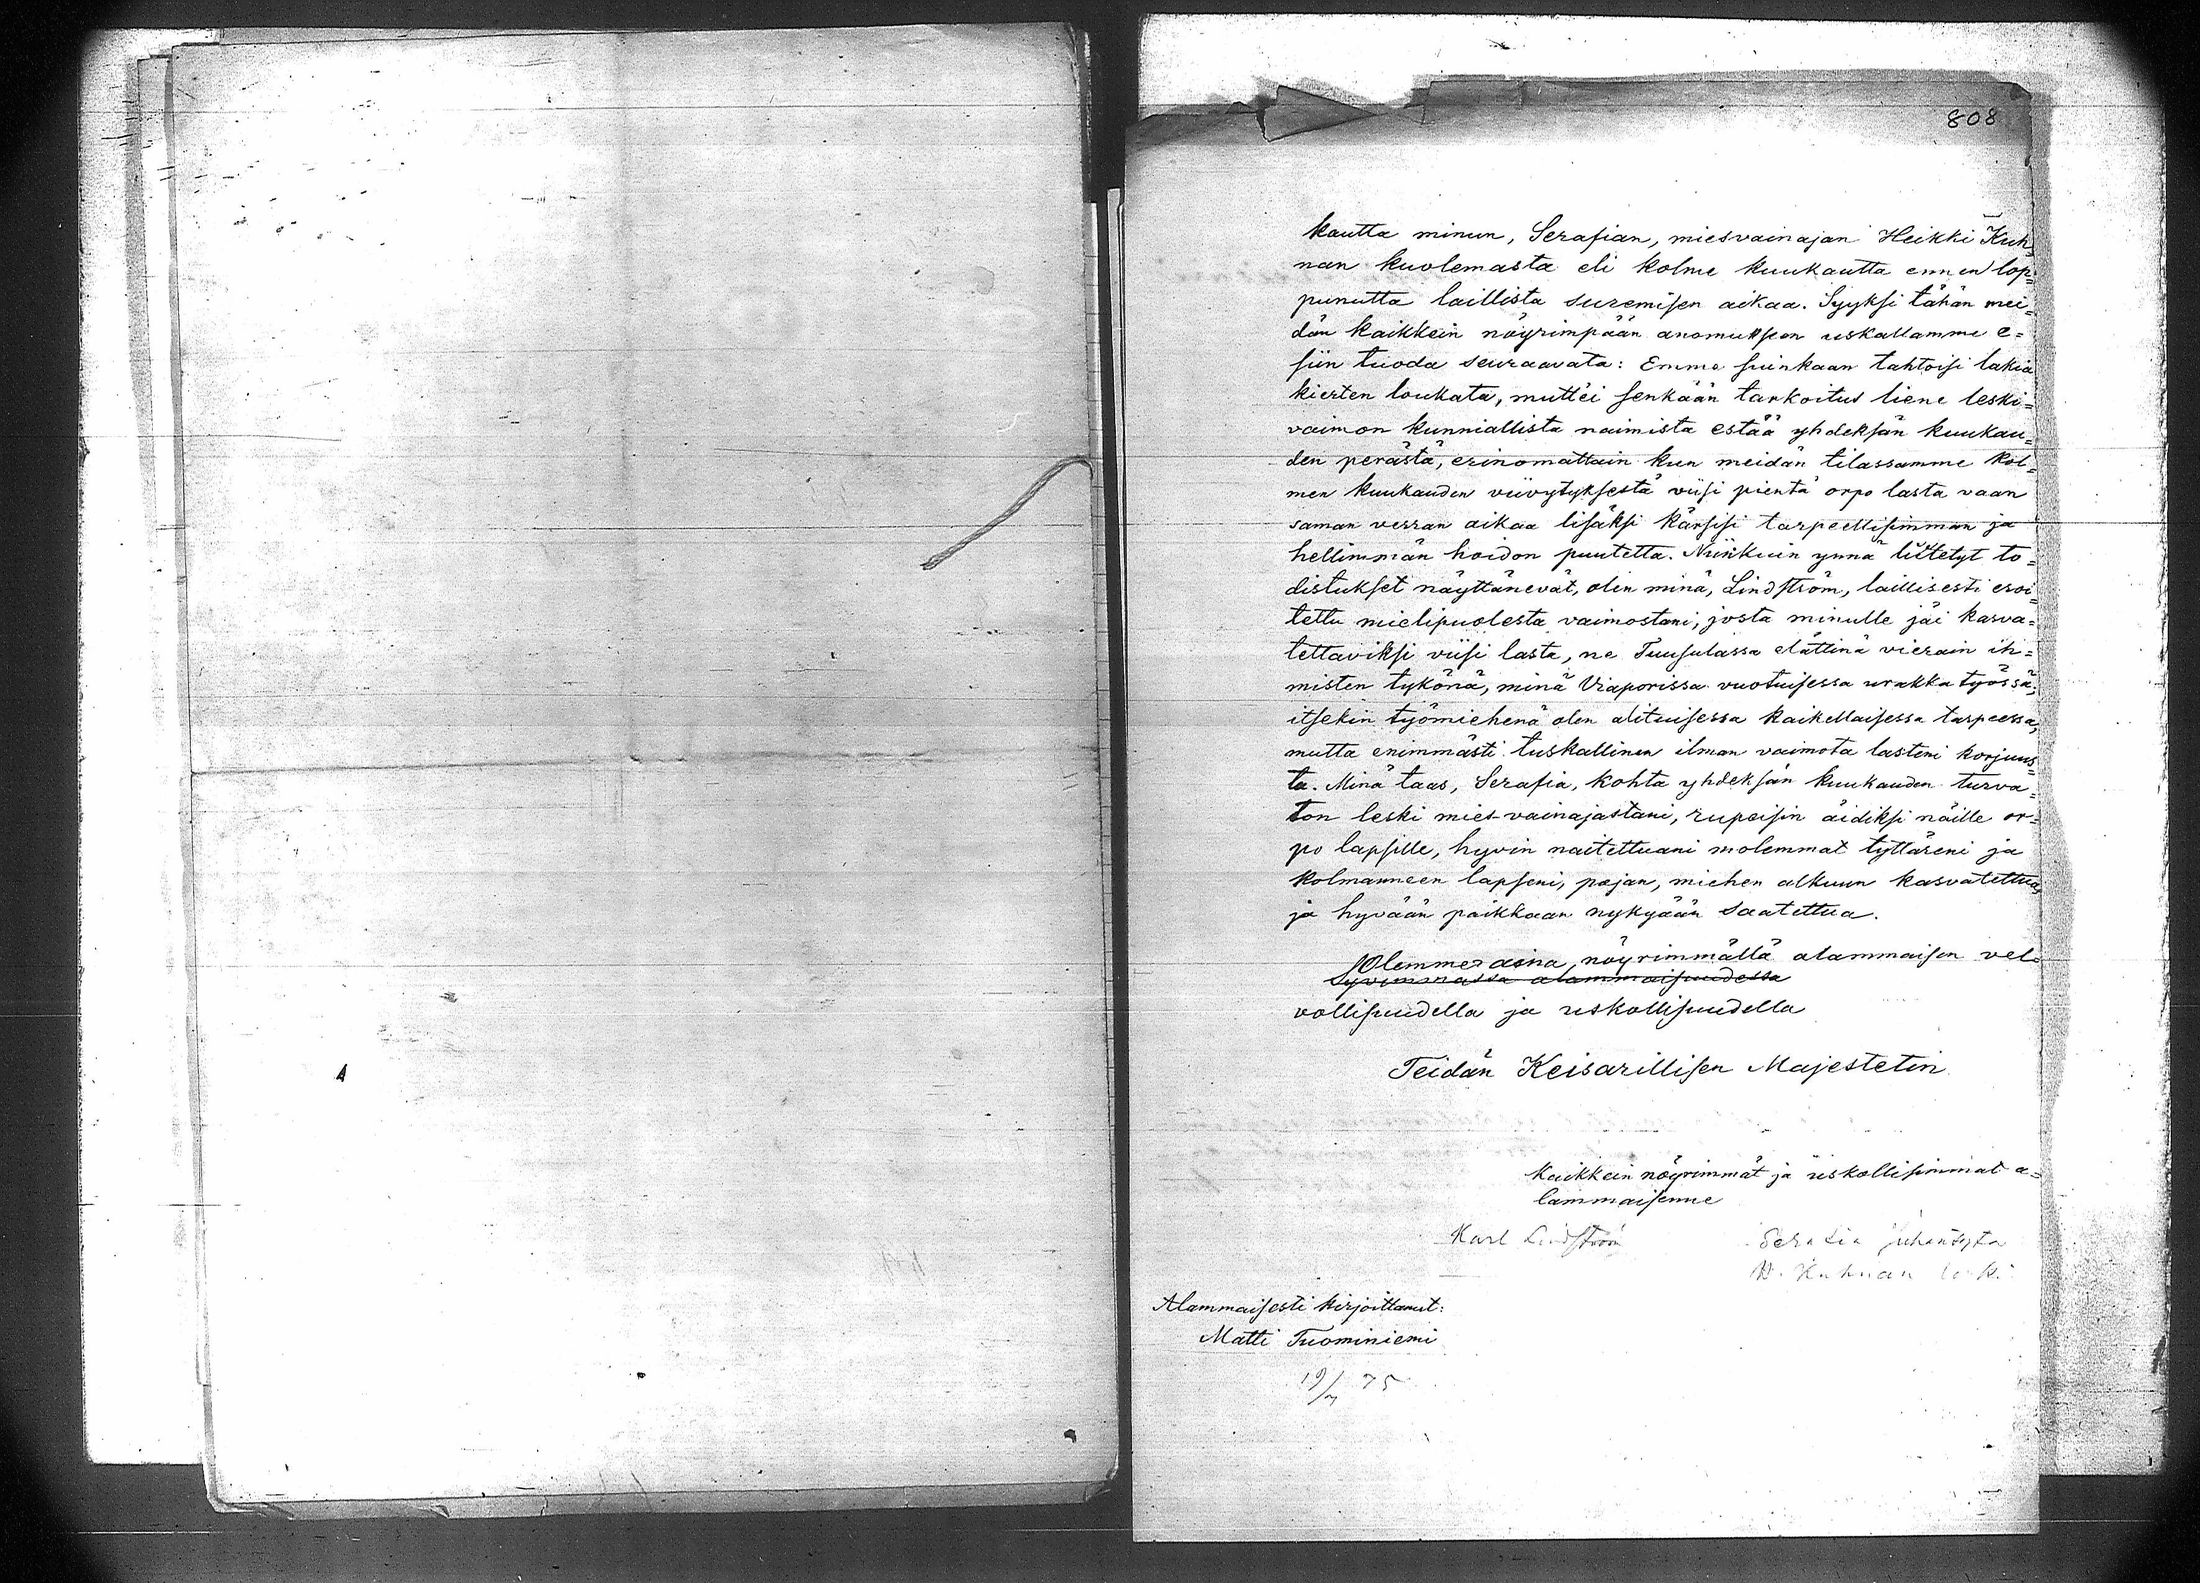 808
kautta minun, Serafian, miesvainajan Heikki Kuh=
nan kuolemasta eli kolme kuukautta ennen lop=
punutta laillista suremisen aikaa. Syyksi tähän mei=
dän kaikkein nöyrimpään anomuksen uskallamme e=
siin tuoda seuraavata: Emme suinkaan tahtoisi lakia
kierten loukata, mutt'ei senkään tarkoitus liene leski=
vaimon kunniallista naimista estää yhdeksän kuukau=
den perästä, erinomattain kun meidän tilassamme kol=
men kuukauden viivytyksestä viisi pientä orpo lasta vaan
saman verran aikaa lisäksi kärsisi tarpeellisimman ja
hellimmän hoidon puutetta. Niinkuin ynnä liitetyt to=
distukset näyttänevät, olen minä, Lindström, laillisesti eroi=
tettu mielipuolesta vaimostani, josta minulle jäi kasva=
tettaviksi viisi lasta, ne Tuusulassa elättinä vierain ih=
misten tykönä, minä Viaporissa vuotuisessa urakka työssä;
itsekin työmiehenä olen alituisessa kaikellaisessa tarpeessa,
mutta enimmästi tuskallinen ilman vaimota lasteni korjuus=
ta. Minä taas, Serafia, kohta yhdeksän kuukauden turva=
ton leski mies-vainajastani, rupeisin äidiksi näille or=
po lapsille, hyvin naitettuani molemmat tyttäreni ja
kolmanneen lapseni, pojan, miehen alkuun kasvatettua,
ja hyvään paikkaan nykyään saatettua.
Olemme aina nöyrimmällä alammaisen vel=
Syvimmässä alammaisuudessa
vollisuudella ja uskollisuudella
Teidän Keisarillisen Majestetin
Kaikkein nöyrimmät ja uskollisimmat a=
lammaisenne
Karl Lindström
Serafia Juhantytär
H. Kuhnan leski
Alammaisesti kirjoittanut:
Matti Tuominiemi
19/7 75